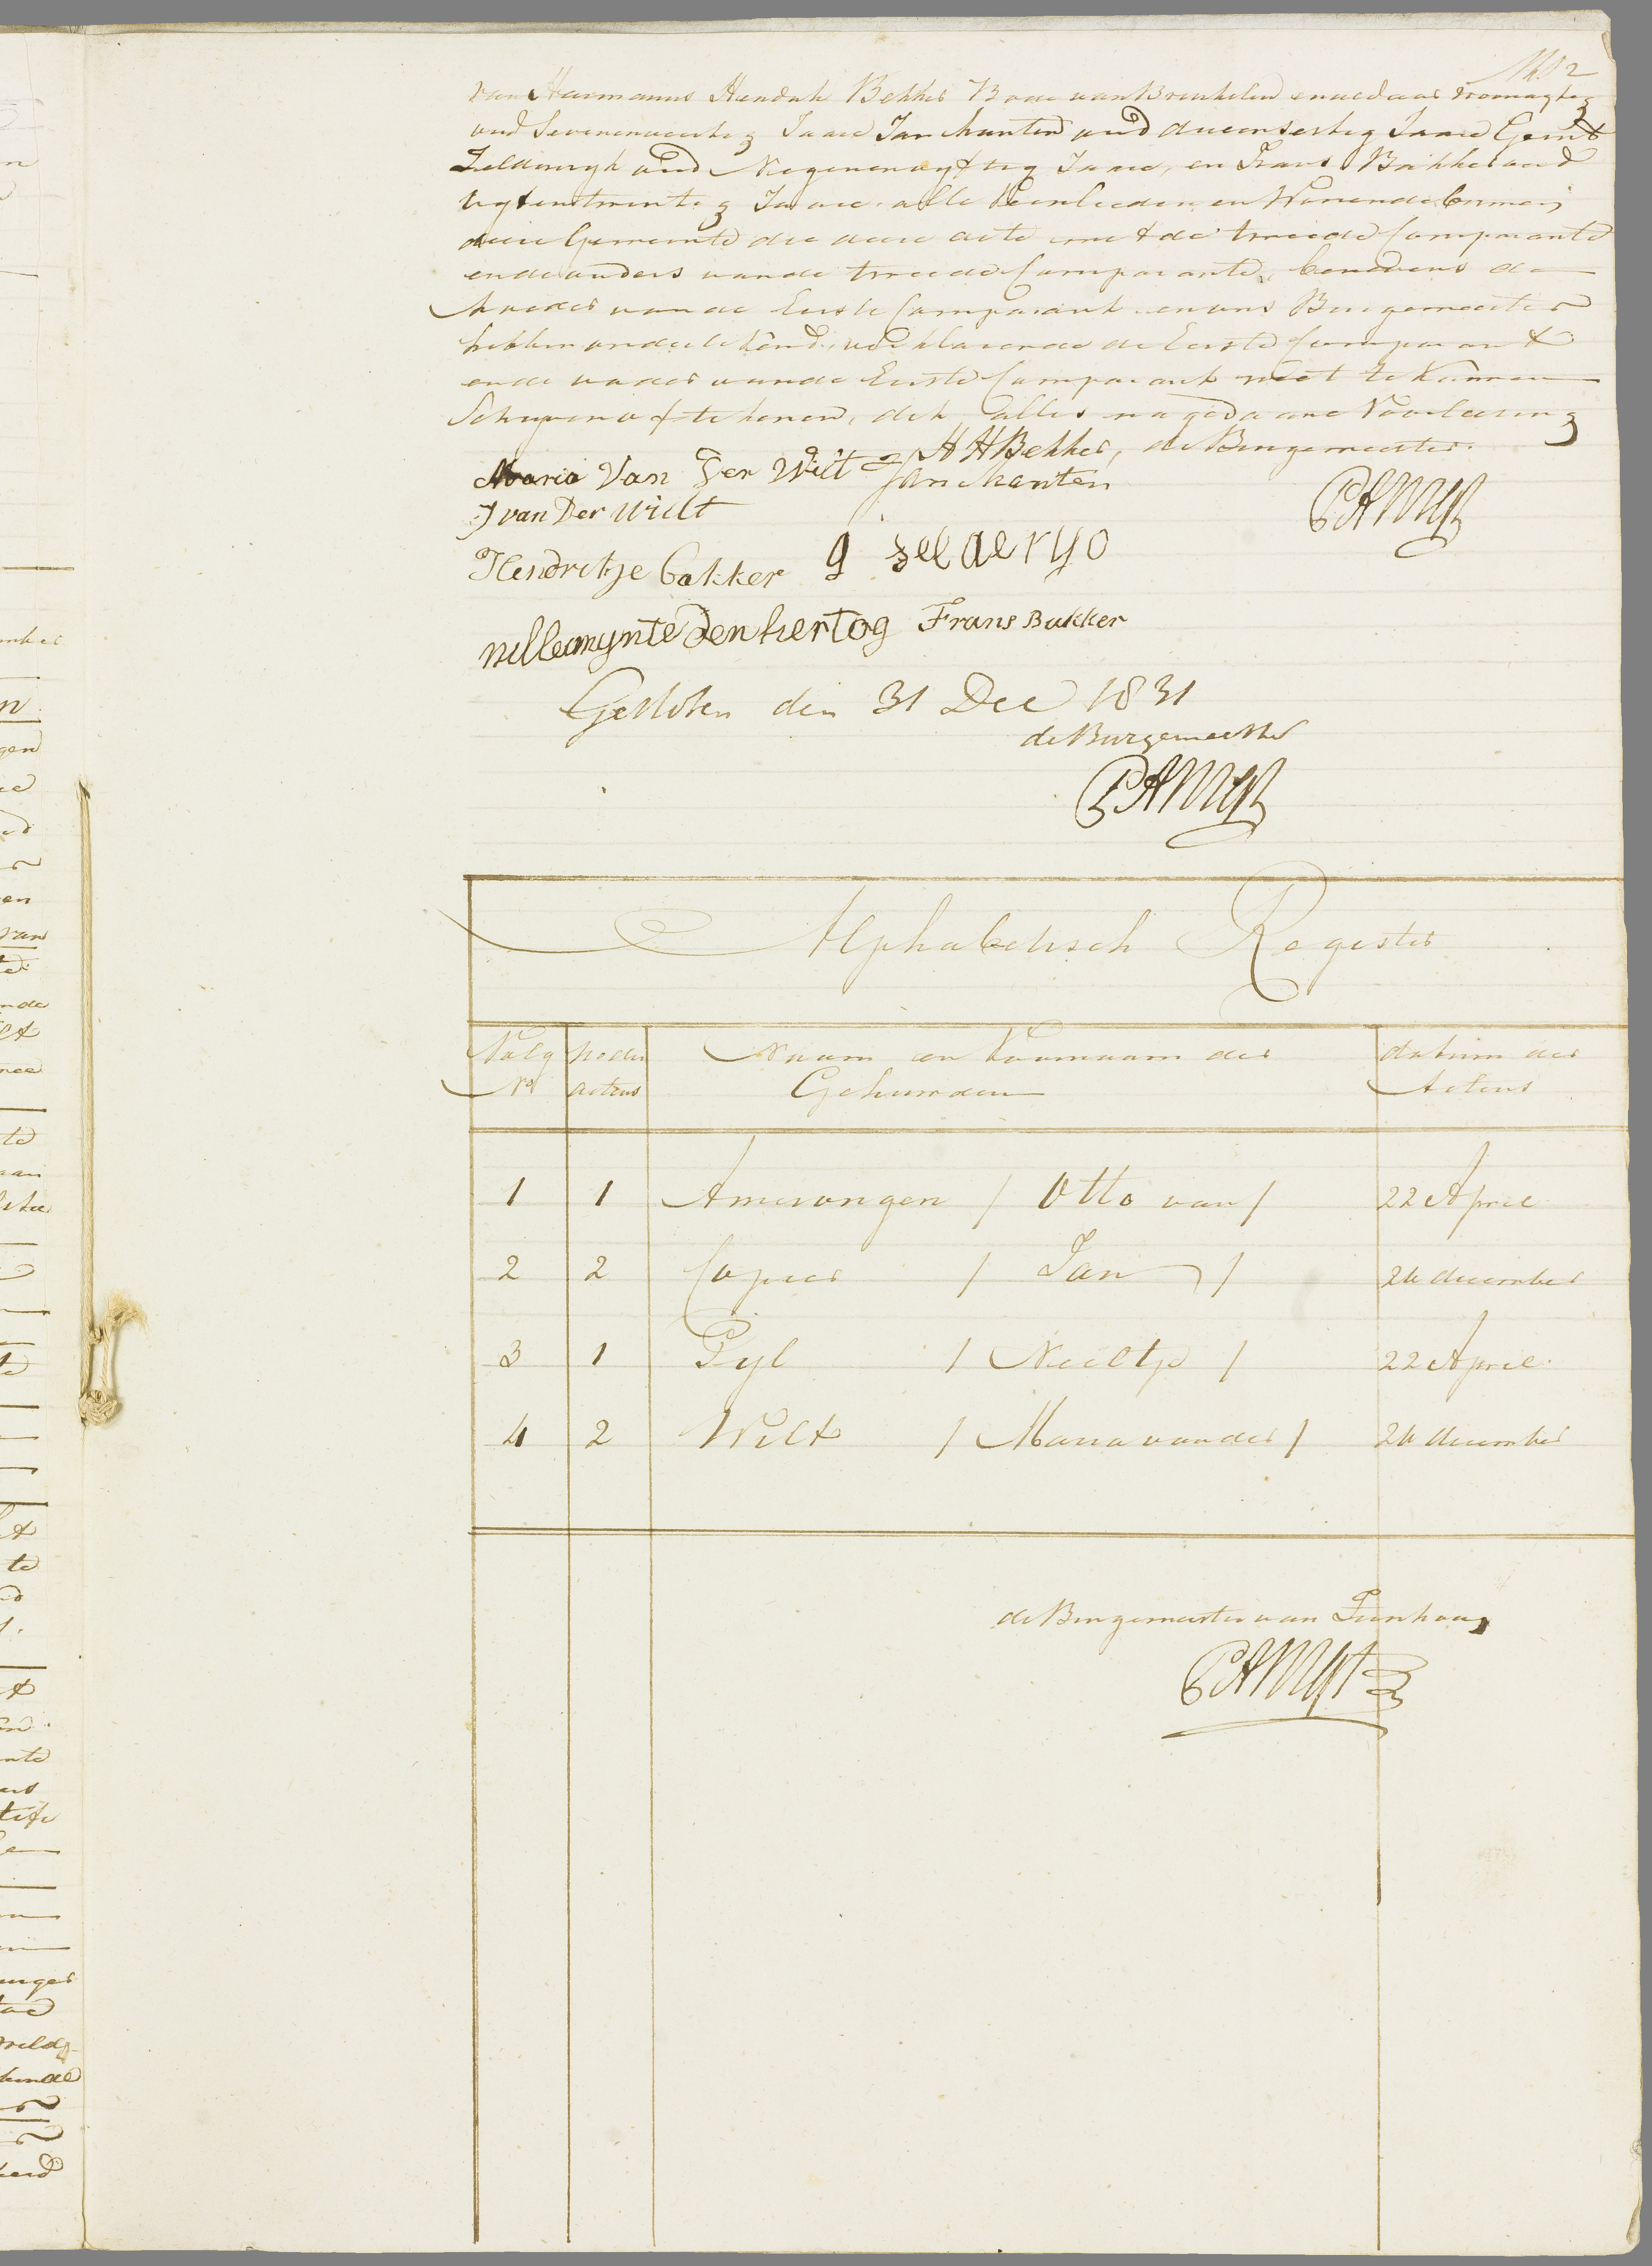 No 2
van Harmanus Hendrik Bekker Bode van Breukelen en aldaar woonagtig
oud Sevenenveertig Jaare Jan Manten oud drieensestig Jaare Gerrit
Zeldenryk oud Negenenvyftig Jaare, en Frans Bakker oud
vyfentwintig Jaare, alle Veenlieden en Wonende binnen
deese Gemeente die deese acte met de tweede Comparante
en de ouders van de tweede Comparante, benevens de
Moeder van de Eerste Comparant en ons Burgemeester
hebben ondertekend, verklarende de Eerste Comparant
en de vader van de Eerste Comparant niet te kunnen
Schryven of tekenen, dit alles na gedaane Voorleesing
Maria Van Der Wilt H H Bekker, de Burgemeester.
J van Der Wilt Jan Manten
Hendrikje bakker g seldenryo
willemynte den hertog Frans Bakker
Gesloten den 31 Dec 1831
de Burgemeester
Alphabetisch Register
Volg No der Naam en Voornaam der datum der
No actens Gehuwden Actens
1 1 Amerongen / Otto van / 22 April
2 2 Copier / Jan / 26 december
3 1 Pyl / Neeltje / 22 April
4 2 Wilt / Maria van der / 26 december
de Burgemeester van